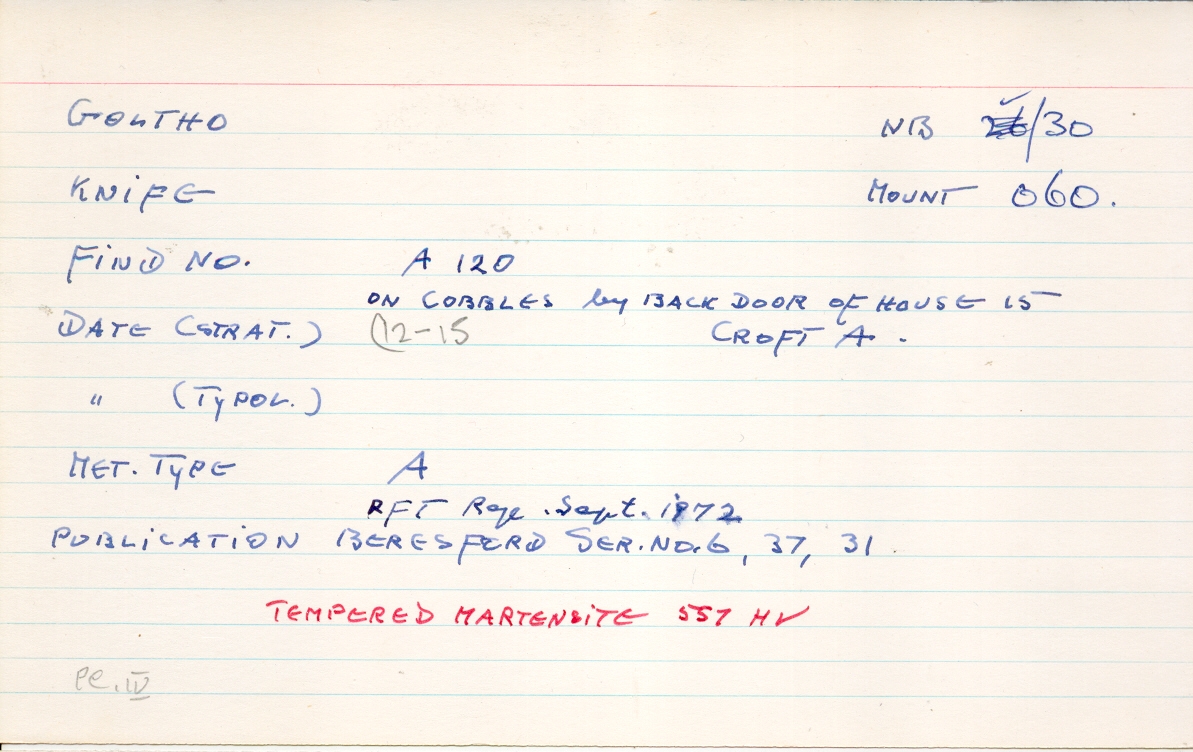 GOLTHO NB /30
KNIFE MOUNT 060.
FIND NO. A 120
ON COBBLES by BACK DOOR OF HOUSE 15
DATE (STRAT.) (12-15 CROFT A.
" (TYPOL.)
MET. TYPE A
RFT Sept. 1972
PUBLICATION BERESFORD SER. NO. 6, 37, 31.
TEMPERED MARTENSITE 557 HV
PL. IV